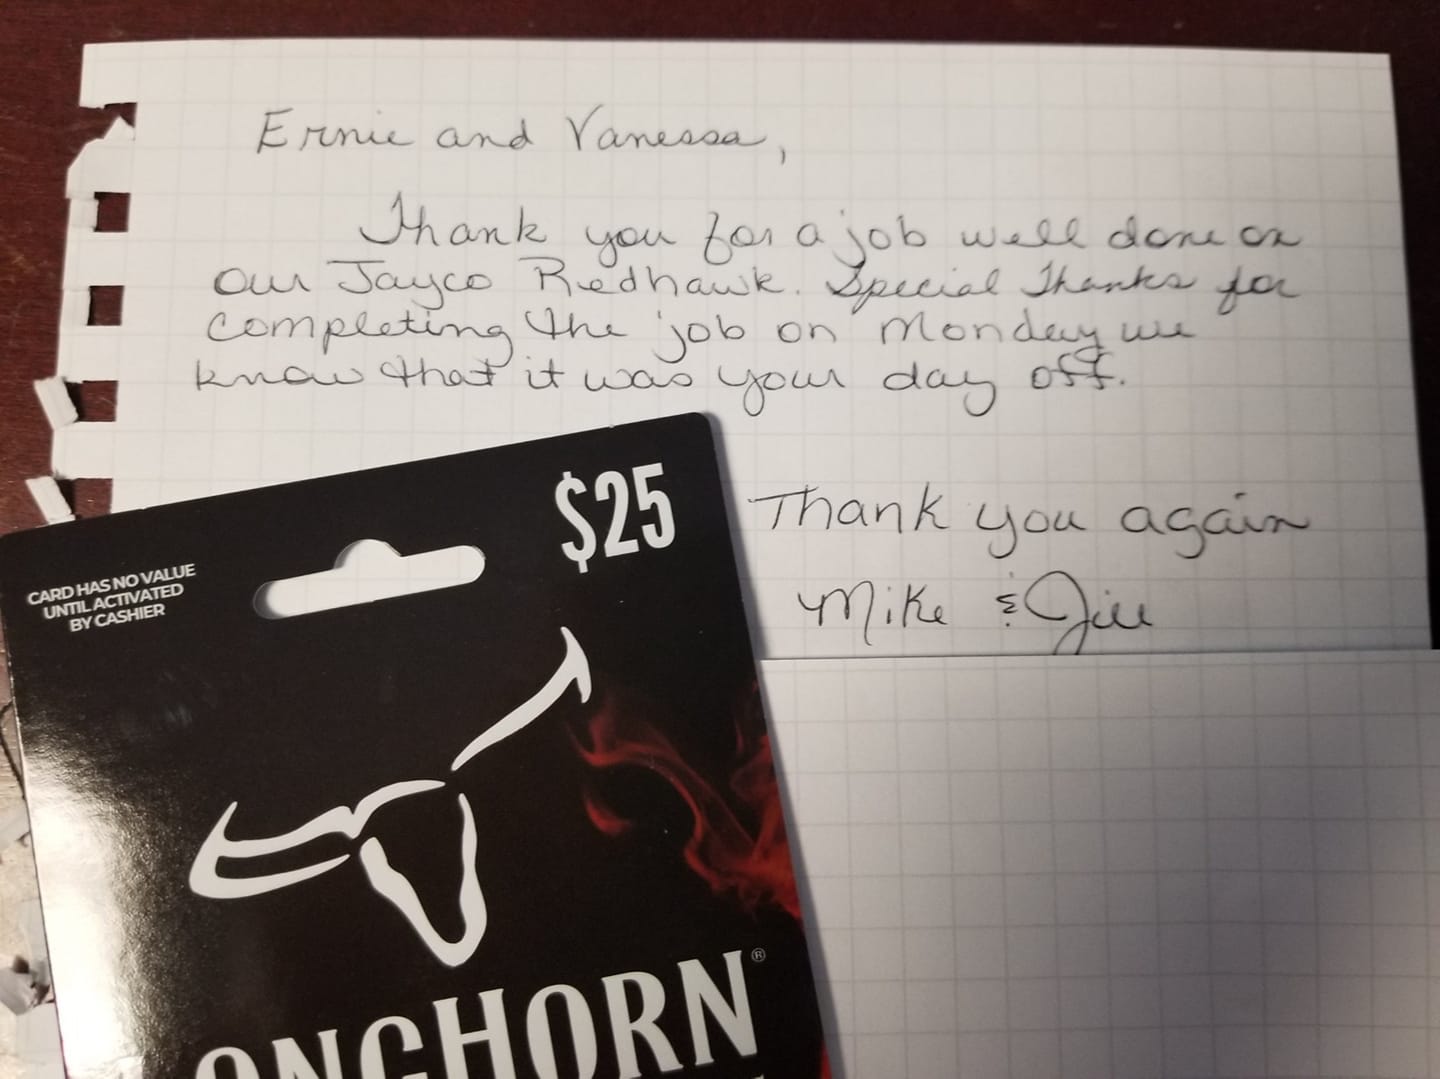 Ernie and Vanessa,
Thank you for a job well done on
our Jayco Redhawk. Special Thanks for
completing the job on Monday we
know that it was your day off.
Thank you again
Mike & Jill
$25
CARD HAS NO VALUE
UNTIL ACTIVATED
BY CASHIER
ONGHORN®